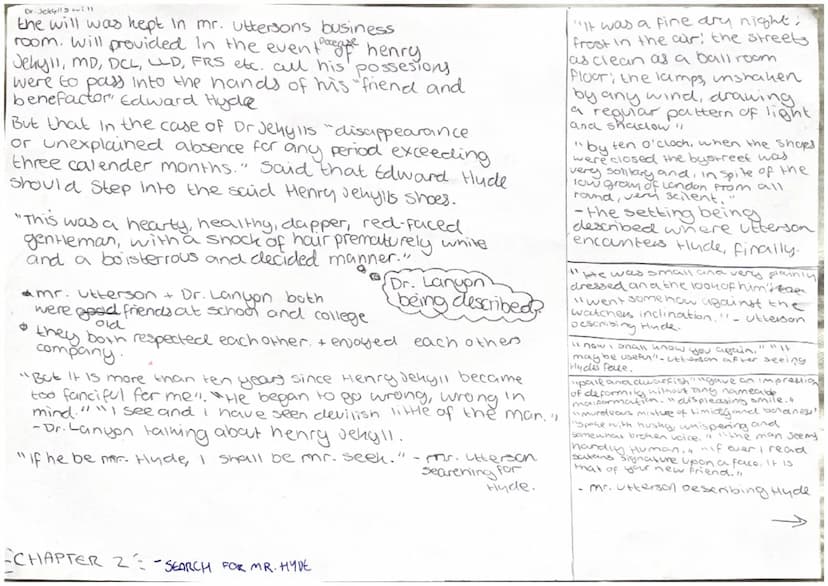 Dr. Jekyll's will
the will was kept in mr. uttersons business
room. will provided in the event decease of henry
Jekyll, MD, DCL, LLD, FRS etc. all his possesions
were to pass into the hands of his "friend and
benefactor" Edward Hyde
But that in the case of Dr Jekylls "disappearance
or unexplained absence for any period exceeding
three calender months." said that Edward Hyde
should step into the said Henry Jekylls shoes.
"This was a hearty, healthy, dapper, red-faced
gentleman, with a shock of hair prematurely white
and a boisterrous and decided manner."
Dr. Lanyon
being described?
mr. utterson + Dr. Lanyon both
were good old friends at school and college
they both respected eachother + enjoyed each others
company.
"But it is more than ten years since Henry Jekyll became
too fanciful for me". "He began to go wrong, wrong in
mind." "I see and i have seen devilish little of the man."
- Dr. Lanyon talking about henry Jekyll.
"If he be mr. Hyde, I shall be mr. seek." - mr. utterson
searching for
Hyde.
CHAPTER 2: - SEARCH FOR MR. HYDE
"It was a fine dry night;
frost in the air; the streets
as clean as a ball room
floor; the lamps, unshaken
by any wind, drawing
a regular pattern of light
and shadow"
"by ten o'cloch, when the shops
were closed the bystreet was
very solitary and, in spite of the
low growl of London from all
round, very scilent."
- the setting being
described where utterson
encounters Hyde, finally.
"He was small and very plainly
dressed and the look of him"
"went somehow against the
watchers inclination." - utterson
describing Hyde.
"now i shall know you again." "It
may be useful" - utterson after seeing
Hydes face.
"pale and dwarfish" "gave an impression
of deformity without any nameable
malformation." "displeasing smile."
"murderous mixture of timidity and boldness"
"spoke with husky, whispering and
somewhat broken voice." "the man seems
hardly human." "if ever i read
satans signature upon a face, it is
that of your new friend."
- mr. utterson describing Hyde